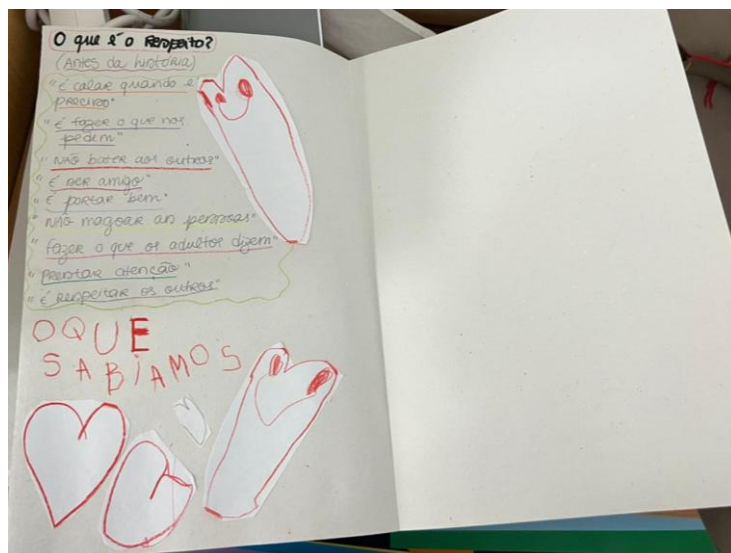 O que é o Respeito?
(Antes da história)
"é calar quando é
preciso"
"é fazer o que nos
pedem"
"Não bater aos outros"
"É ser amigo"
"É portar bem"
"Não magoar as pessoas"
"fazer o que os adultos dizem"
"Prestar atenção"
"é respeitar os outros"
O QUE
SABIAMOS